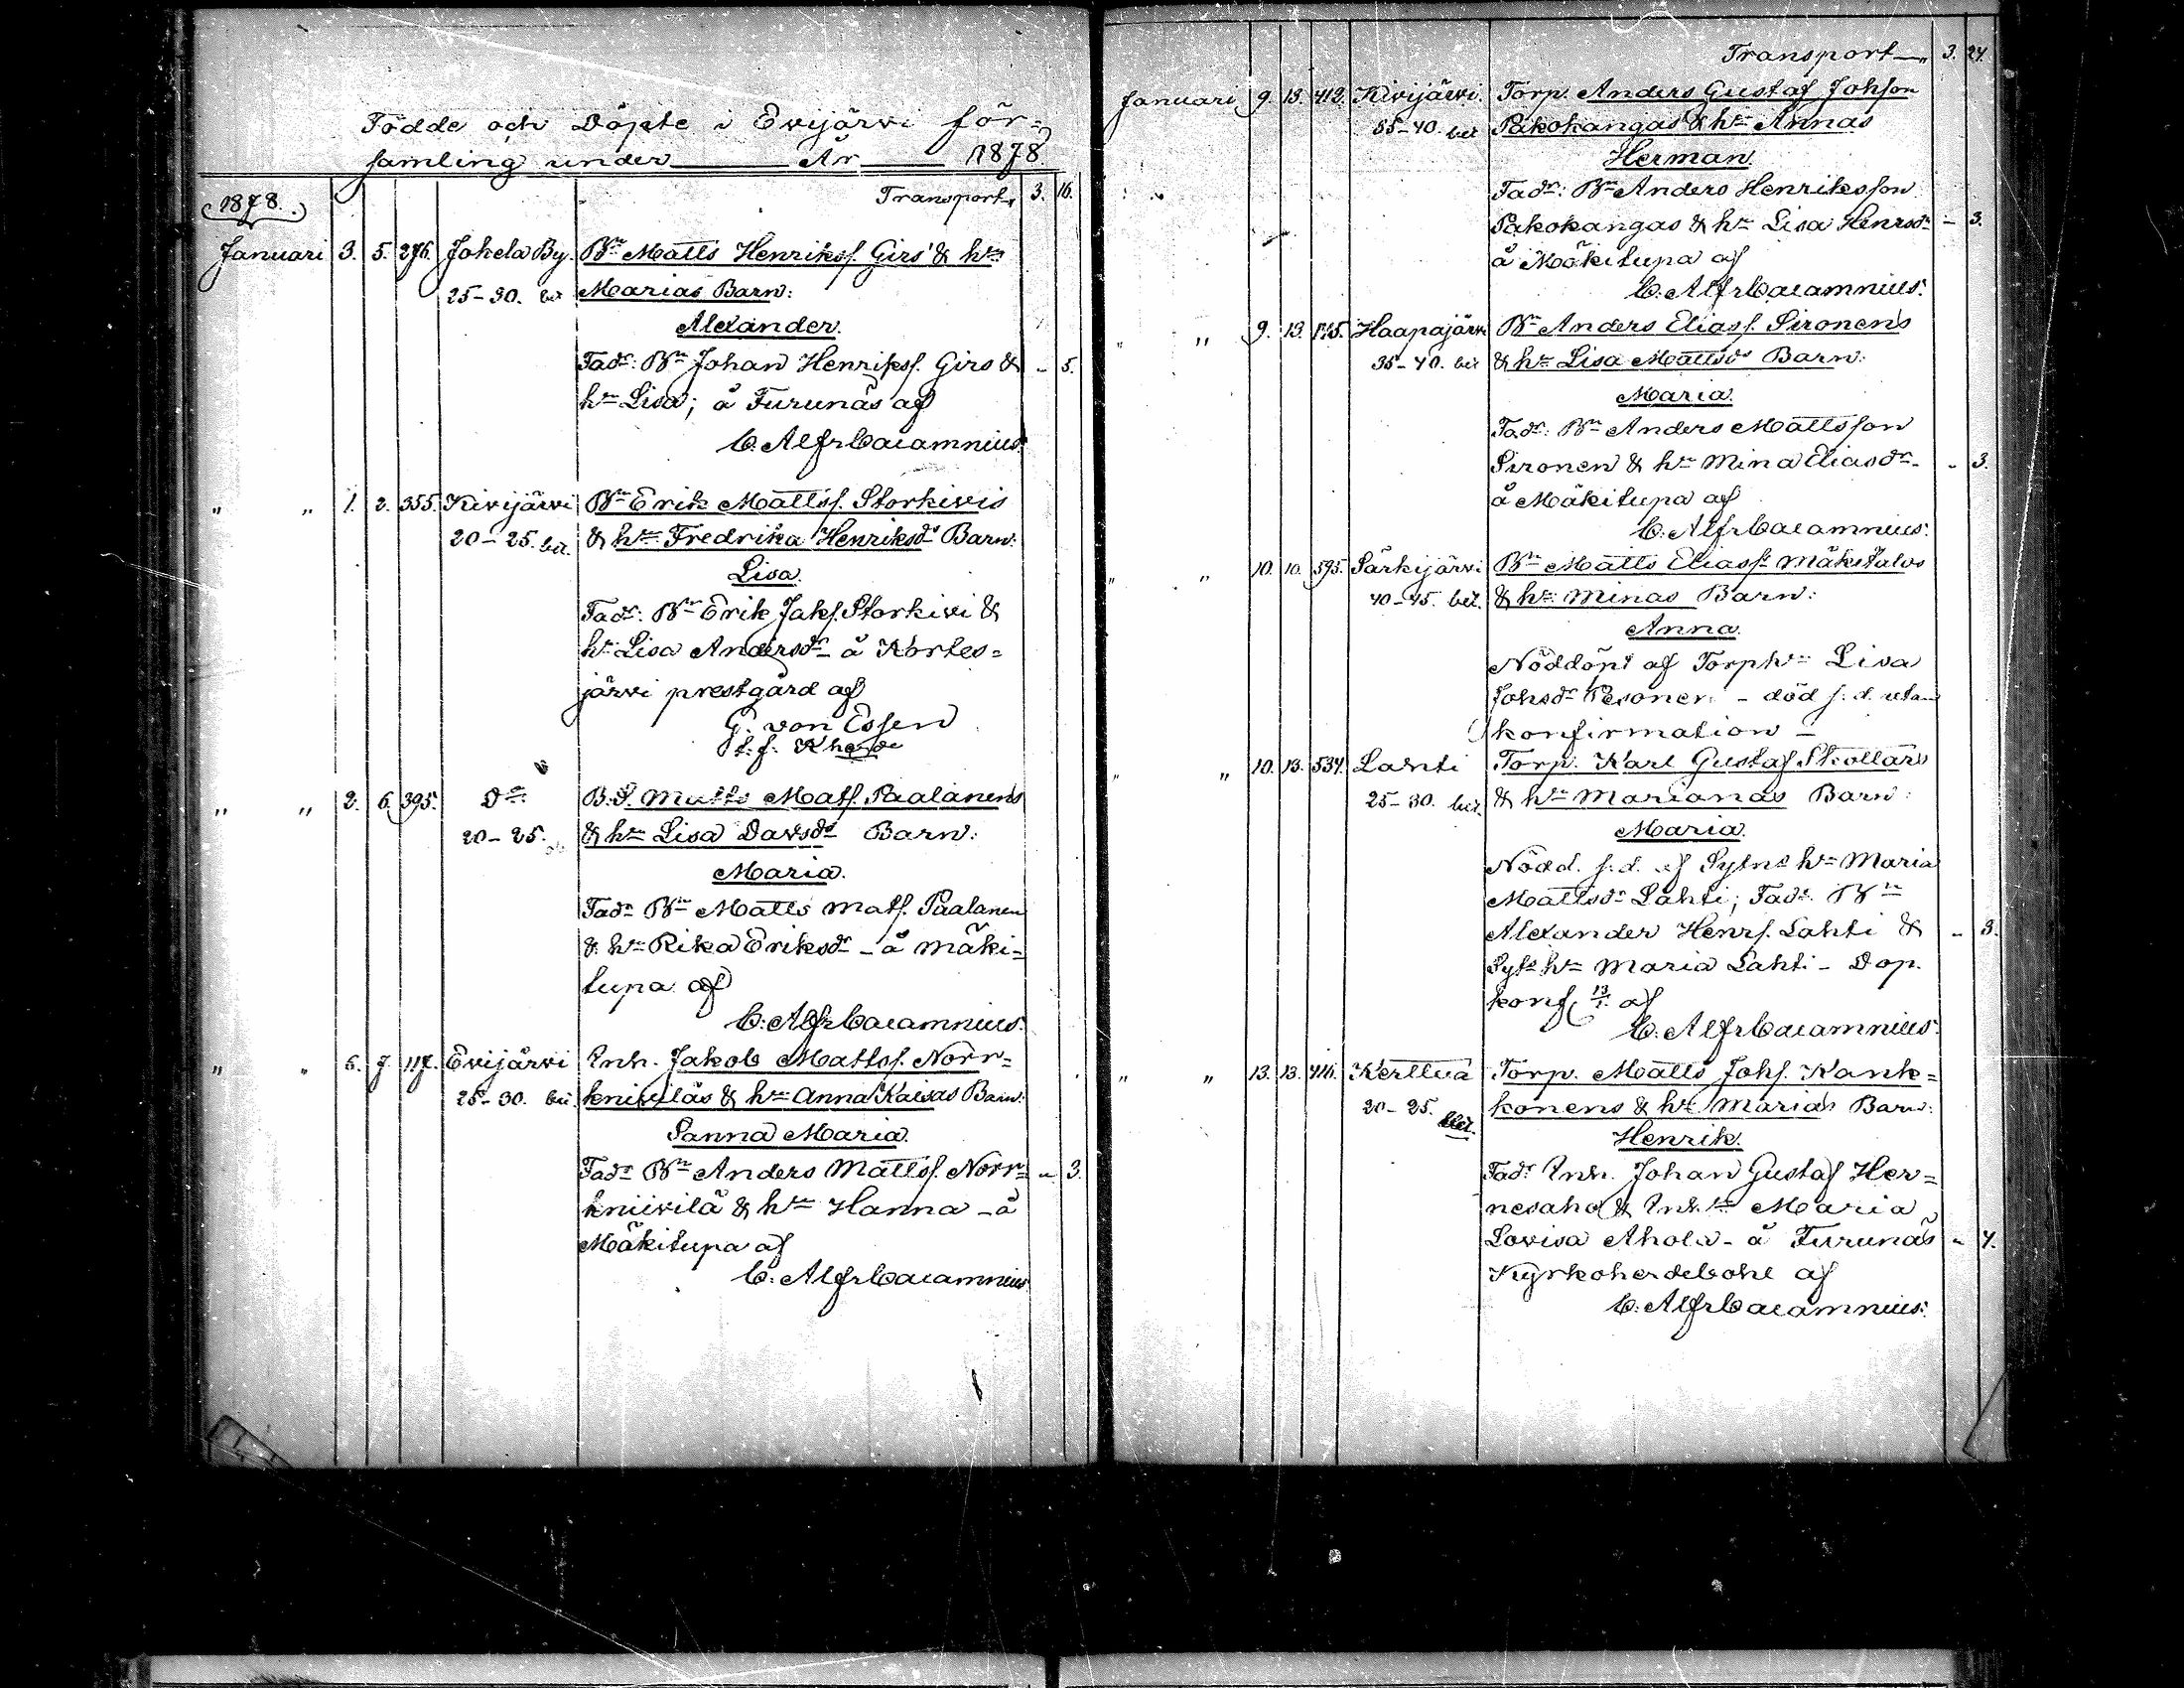 Födde och Döpte i Evijärvi för=
samling under År 1878.
1878. Transport 3. 16.
Januari 3. 5. 276. Jokela By. Bn Matts Henrikss. Girs & hn
25-30. bet Marias Barn:
Alexander.
Fadr: Bn Johan Henrikss. Girs & - 5.
hn Lisa; å Furunäs af
C. Alfr Cajamnius.
" " 1. 2. 355. Kivijärvi Bn Erik Mattss. Storkivis
20-25. bet. & hn Fredrika Henriksds Barn:
Lisa.
Fadr: Bn Erik Jaks. Storkivi &
hn Lisa Andersdr - å Kortes=
järvi prestgård af
G. von Essen
t.f. Kherde
" " 2. 6. 395. Do B.S. Matts Mats. Paalanens
20-25. & hn Lisa Davsds Barn:
Maria.
Fadr Bn Matts Mats. Paalanen
& hn Rika Eriksdr - å Mäki=
tupa af
C. Alfr Cajamnius.
" " 6. 7. 117. Evijärvi Inh. Jakob Mattss. Norr=
25-30. bet. kniiviläs & hn Anna Kaisas Barn:
Sanna Maria.
Fadr Bn Anders Mattss. Norr= - 3.
kniivilä & hn Hanna - å
Mäkitupa af
C. Alfr Cajamnius
Transport 3. 24.
Januari 9. 13. 412. Kivijärvi. Torp. Anders Gustaf Johsson
35-40. bet Pakokangas & hn Annas
Herman.
Fadr: Bn Anders Henriksson
Pakokangas & hn Lisa Henrsdr - 3.
å Mäkitupa af
C. Alfr Cajamnius.
" " 9. 13. 145. Haapajärvi Bn Anders Eliass. Sironens
35-40. bet & hn Lisa Mattsds Barn:
Maria.
Fadr: Bn Anders Mattsson
Sironen & hn Mina Eliasdr - - 3.
å Mäkitupa af
C. Alfr Cajamnius.
" " 10. 10. 595. Särkijärvi Bn Matts Eliass Mäkitalos
40-45. bet. & hn Minas Barn:
Anna.
Nöddöpt af Torphn Lisa
Johsdr Pesonen - död s.d. utan
konfirmation -
" " 10. 13. 534. Lahti Torp. Karl Gustaf Skollars
25-30. bet. & hn Marianas Barn:
Maria.
Nödd. s.d. af Sytns hn Maria
Mattsdr Lahti; Fadr. Bn
Alexander Henrs. Lahti & - 3.
Sytns hn Maria Lahti - Dop.
konf. 13/1. af
C. Alfr Cajamnius.
" " 13. 13. 416. Kerttua Torp. Matts Johs. Kank=
20-25. bet. konens & hn Marias Barn:
Henrik.
Fadr Inh. Johan Gustaf Her=
nesaho & Inh. hn Maria
Lovisa Ahola - å Furunäs - 4.
Kyrkoherdebohl af
C. Alfr Cajamnius.